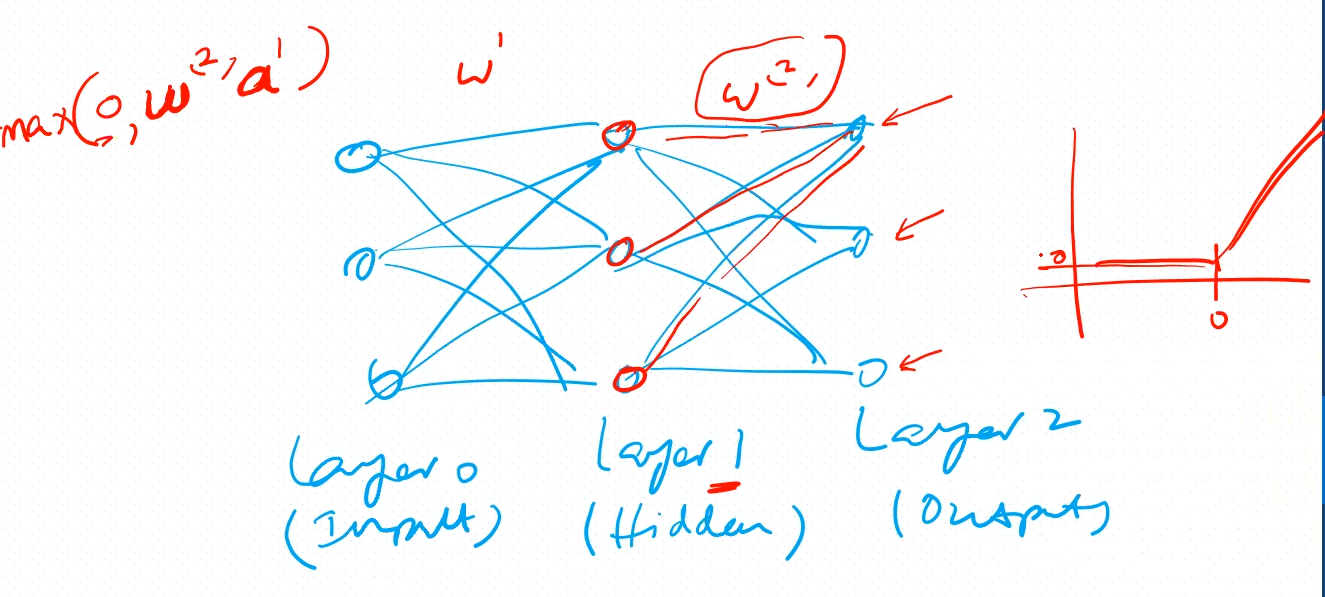 max(0, w², a¹)
w¹
w²,
0
0
Layer 0
(Input)
Layer 1
(Hidden)
Layer 2
(Output)